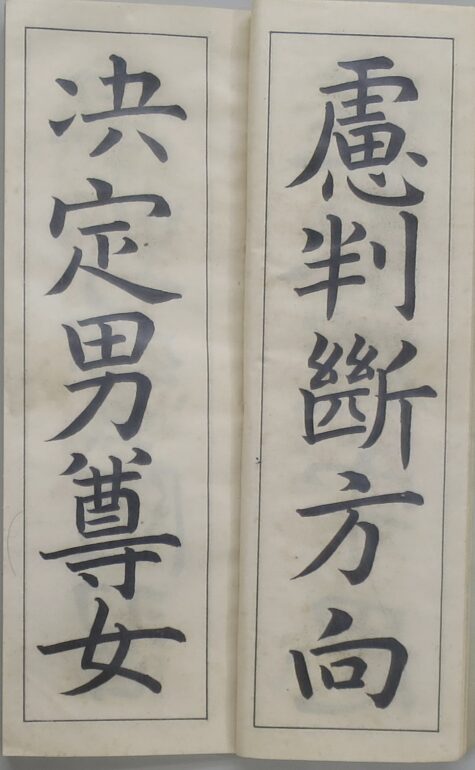 慮判斷方向
决定男尊女